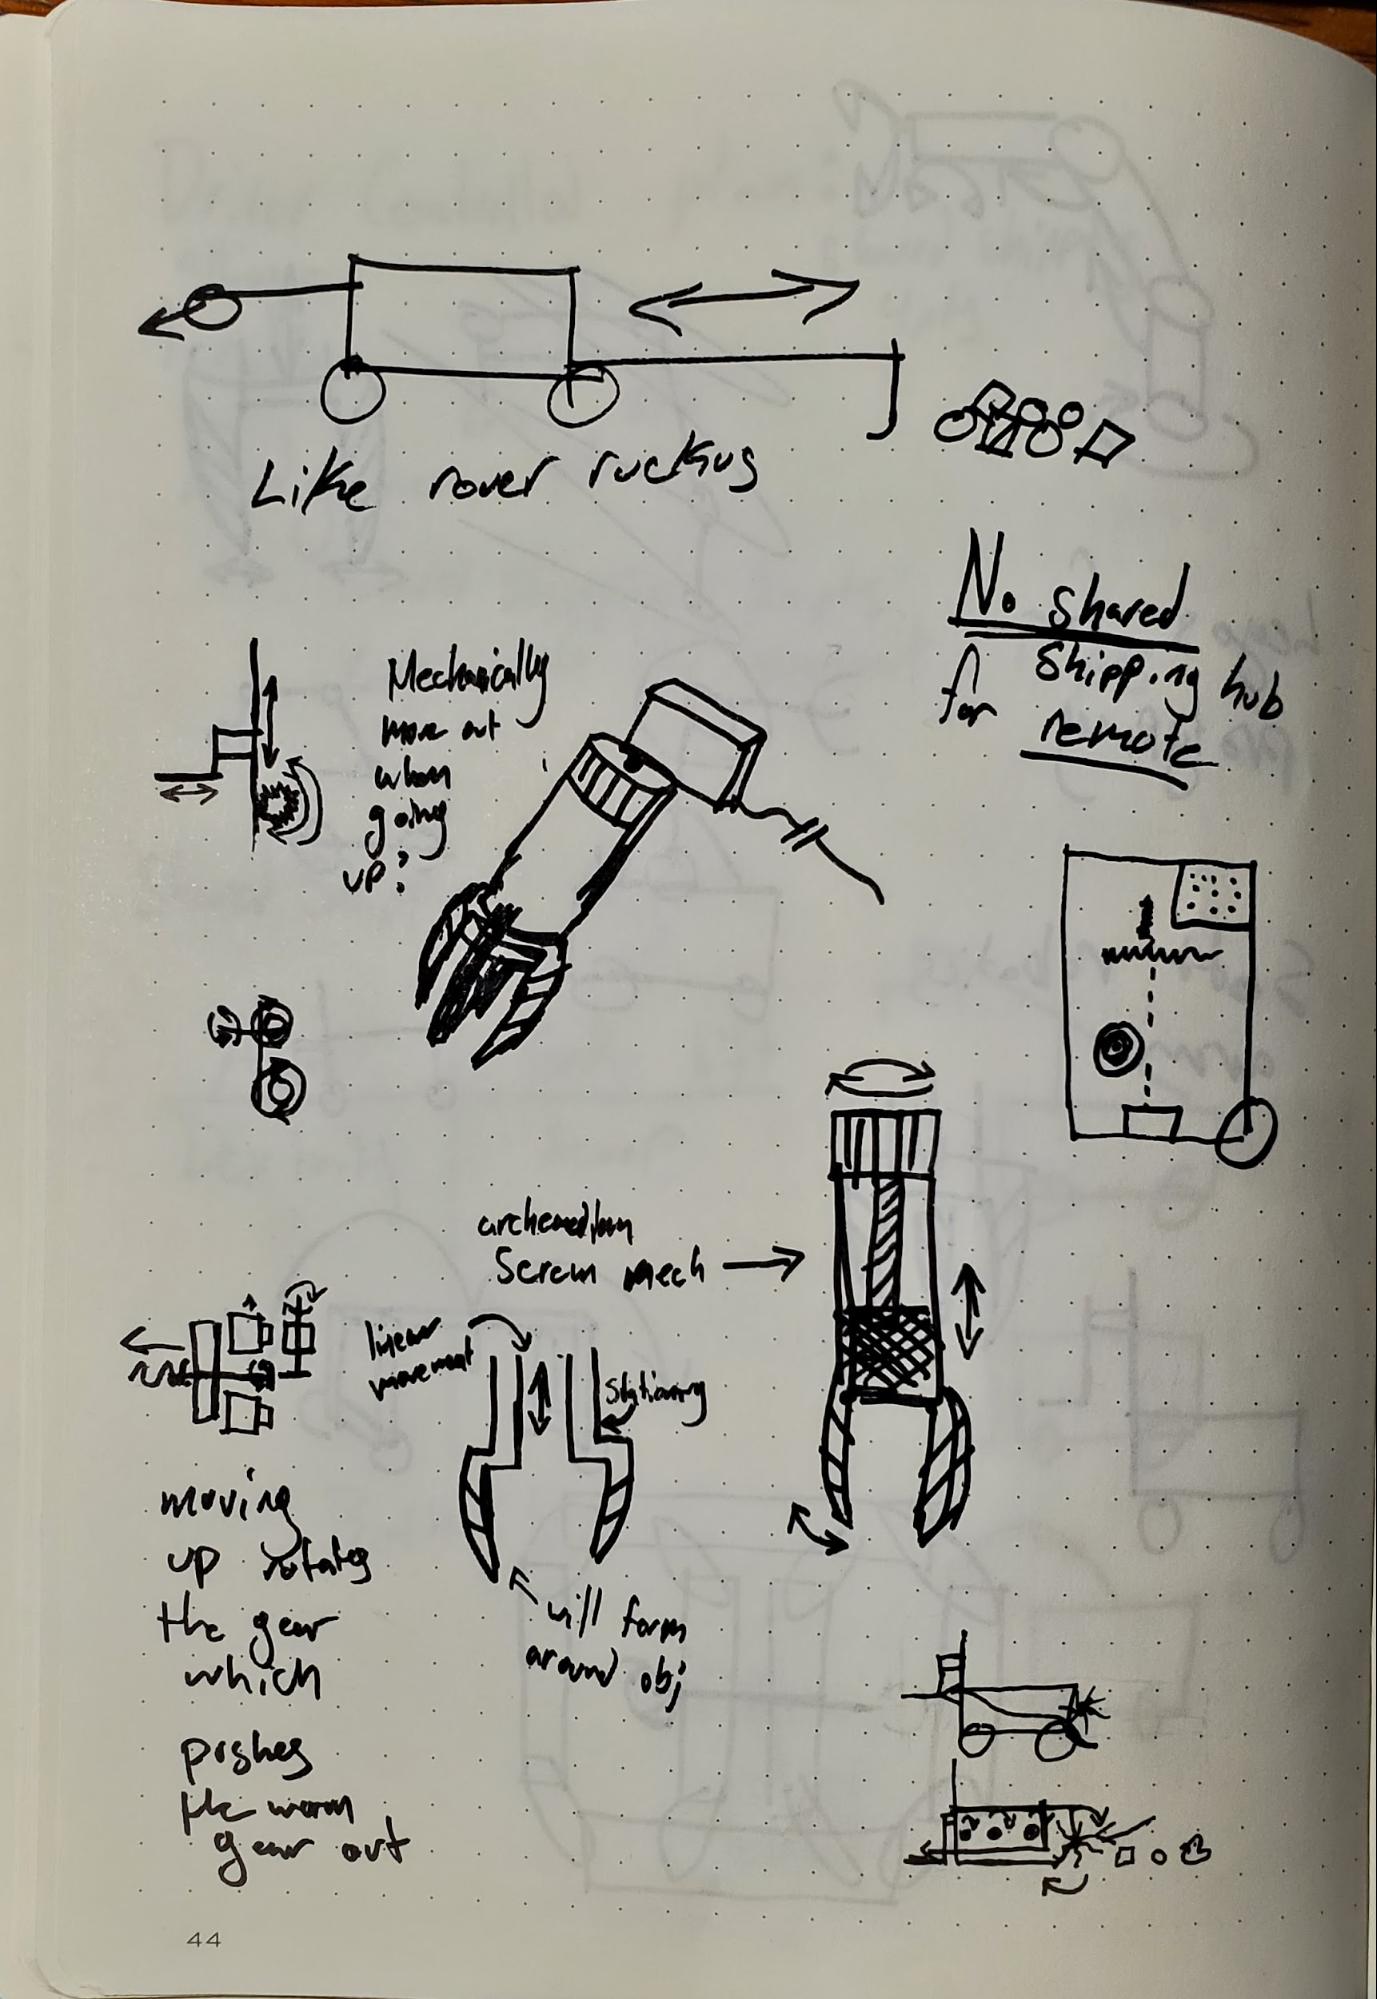 Like rover ruckus
No shared
Shipping hub
for remote
Mechanically
move out
when
going
up?
Screw mech
linear
movement
stationary
will form
around obj
moving
up rotates
the gear
which
pushes
the worm
gear out
44